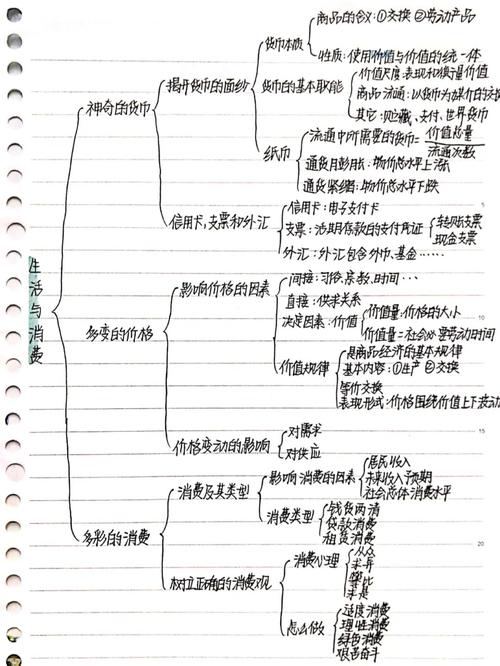 生活与消费
神奇的货币
揭开货币的面纱
货币本质
商品的含义:①交换 ②劳动产品
性质:使用价值与价值的统一体
货币的基本职能
价值尺度:表现和衡量价值
商品流通:以货币为媒介的交换
其它:贮藏、支付、世界货币
纸币
流通中所需要的货币=价值总量/流通次数
通货膨胀:物价总水平上涨
通货紧缩:物价总水平下跌
信用卡,支票和外汇
信用卡:电子支付卡
支票:活期存款的支付凭证
转账支票
现金支票
外汇:外汇包含外币、基金……
多变的价格
影响价格的因素
间接:习俗,宗教,时间···
直接:供求关系
决定因素:价值
价值量:价格的大小
价值量=社会必要劳动时间
价值规律
是商品经济的基本规律
基本内容:①生产 ②交换
等价交换
表现形式:价格围绕价值上下波动
价格变动的影响
对需求
对供应
多彩的消费
消费及其类型
影响消费的因素
居民收入
未来收入预期
社会总体消费水平
消费类型
钱货两清
贷款消费
租赁消费
树立正确的消费观
消费心理
从众
求异
攀比
求是
怎么做
适度消费
理性消费
绿色消费
艰苦奋斗
5
10
15
20